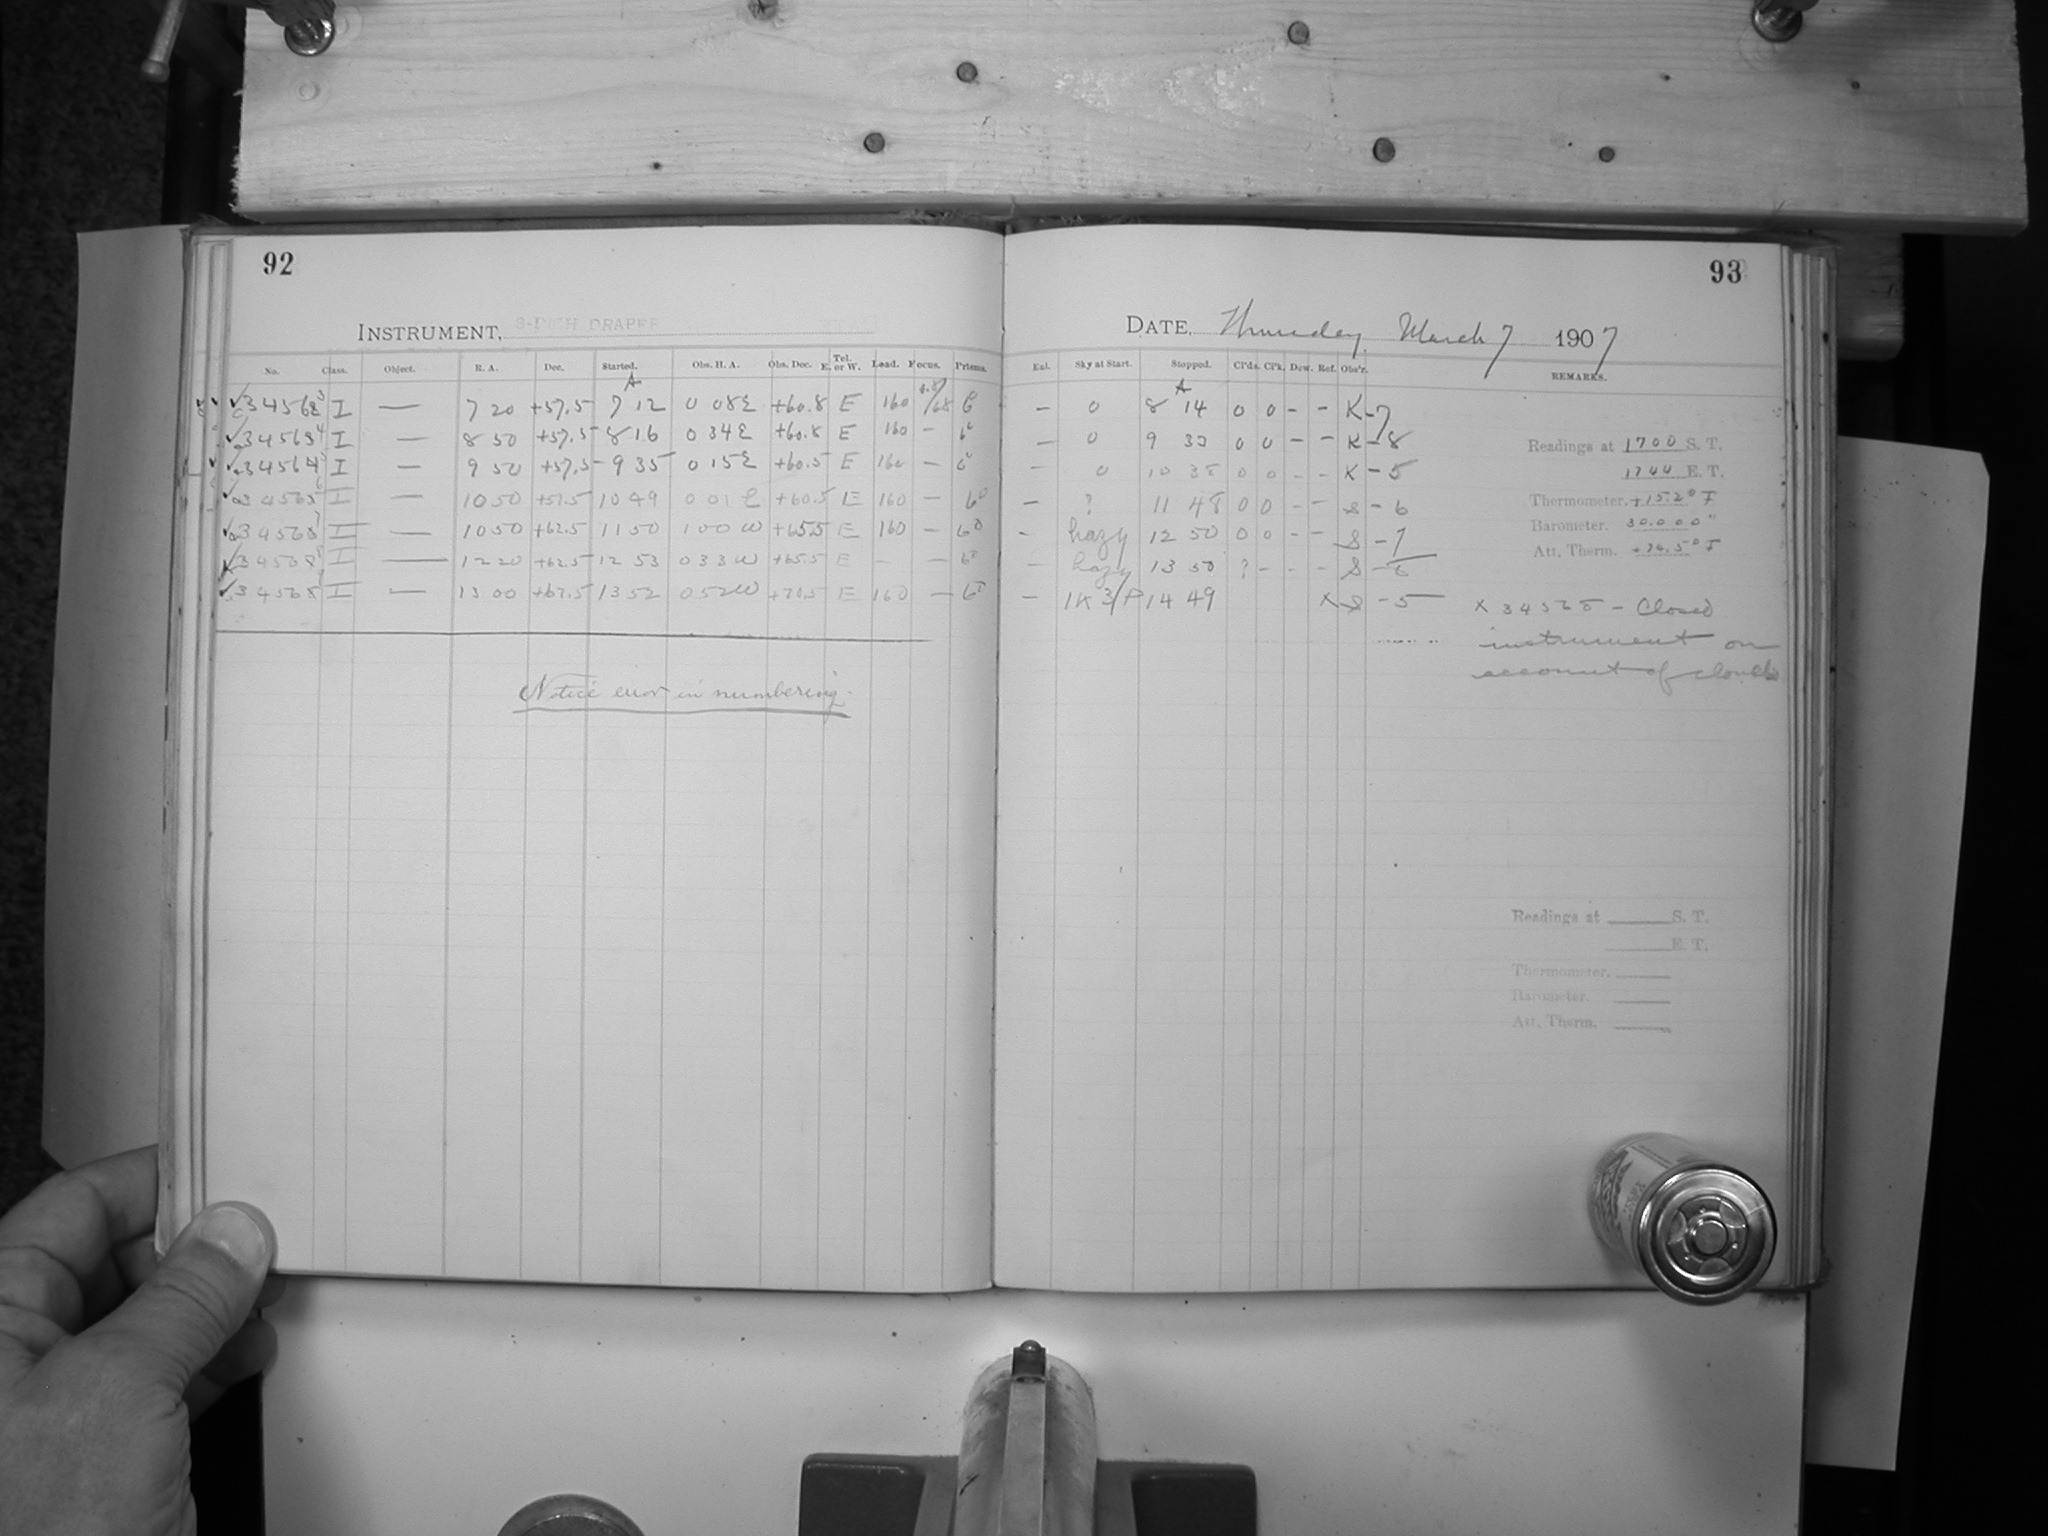 92
INSTRUMENT, 8-INCH DRAPER
No. Class. Object. R. A. Dec. Started. Obs. H. A. Obs. Dec. Tel. E. or W. Lead. Focus. Prisms.
A
I — 7 20 +57.5 7 12 0 08 E +60.8 E 160 6
I — 8 50 +57.5 8 16 0 34 E +60.8 E 160 –
I — 9 50 +57.5 9 35 0 15 E +60.5 E 160 –
I — 10 50 +57.5 10 49 0 01 E +60.5 E 160 –
I — 10 50 +62.5 11 50 1 00 W +65.5 E 160 –
I — 12 20 +62.5 12 53 0 33 W +65.5 E – –
I — 13 00 +67.5 13 52 0 52 W +70.5 E 160 –
Notice error in numbering.
93
DATE, Thursday, March 7 1907
Exl. Sky at Start. Stopped. Cl'ds. Cl'k. Dew. Ref. Obs'r. REMARKS.
A
– 0 8 14 0 0 – – K – 7
– 0 9 30 0 0 – – K – 8
– 0 10 38 0 0 – – K – 5
– ? 11 48 0 0 – – S – 6
– hazy 12 50 0 0 – – S – 7
– hazy 13 50 ? – – – S
– 14 49 x S – 5
Readings at 1700 S. T.
1744 E. T.
Thermometer. +15.2° F
Barometer. 30.000"
Att. Therm. +74.5° F
x Closed
instrument on
account of clouds
Readings at S. T.
E. T.
Thermometer.
Barometer.
Att. Therm.